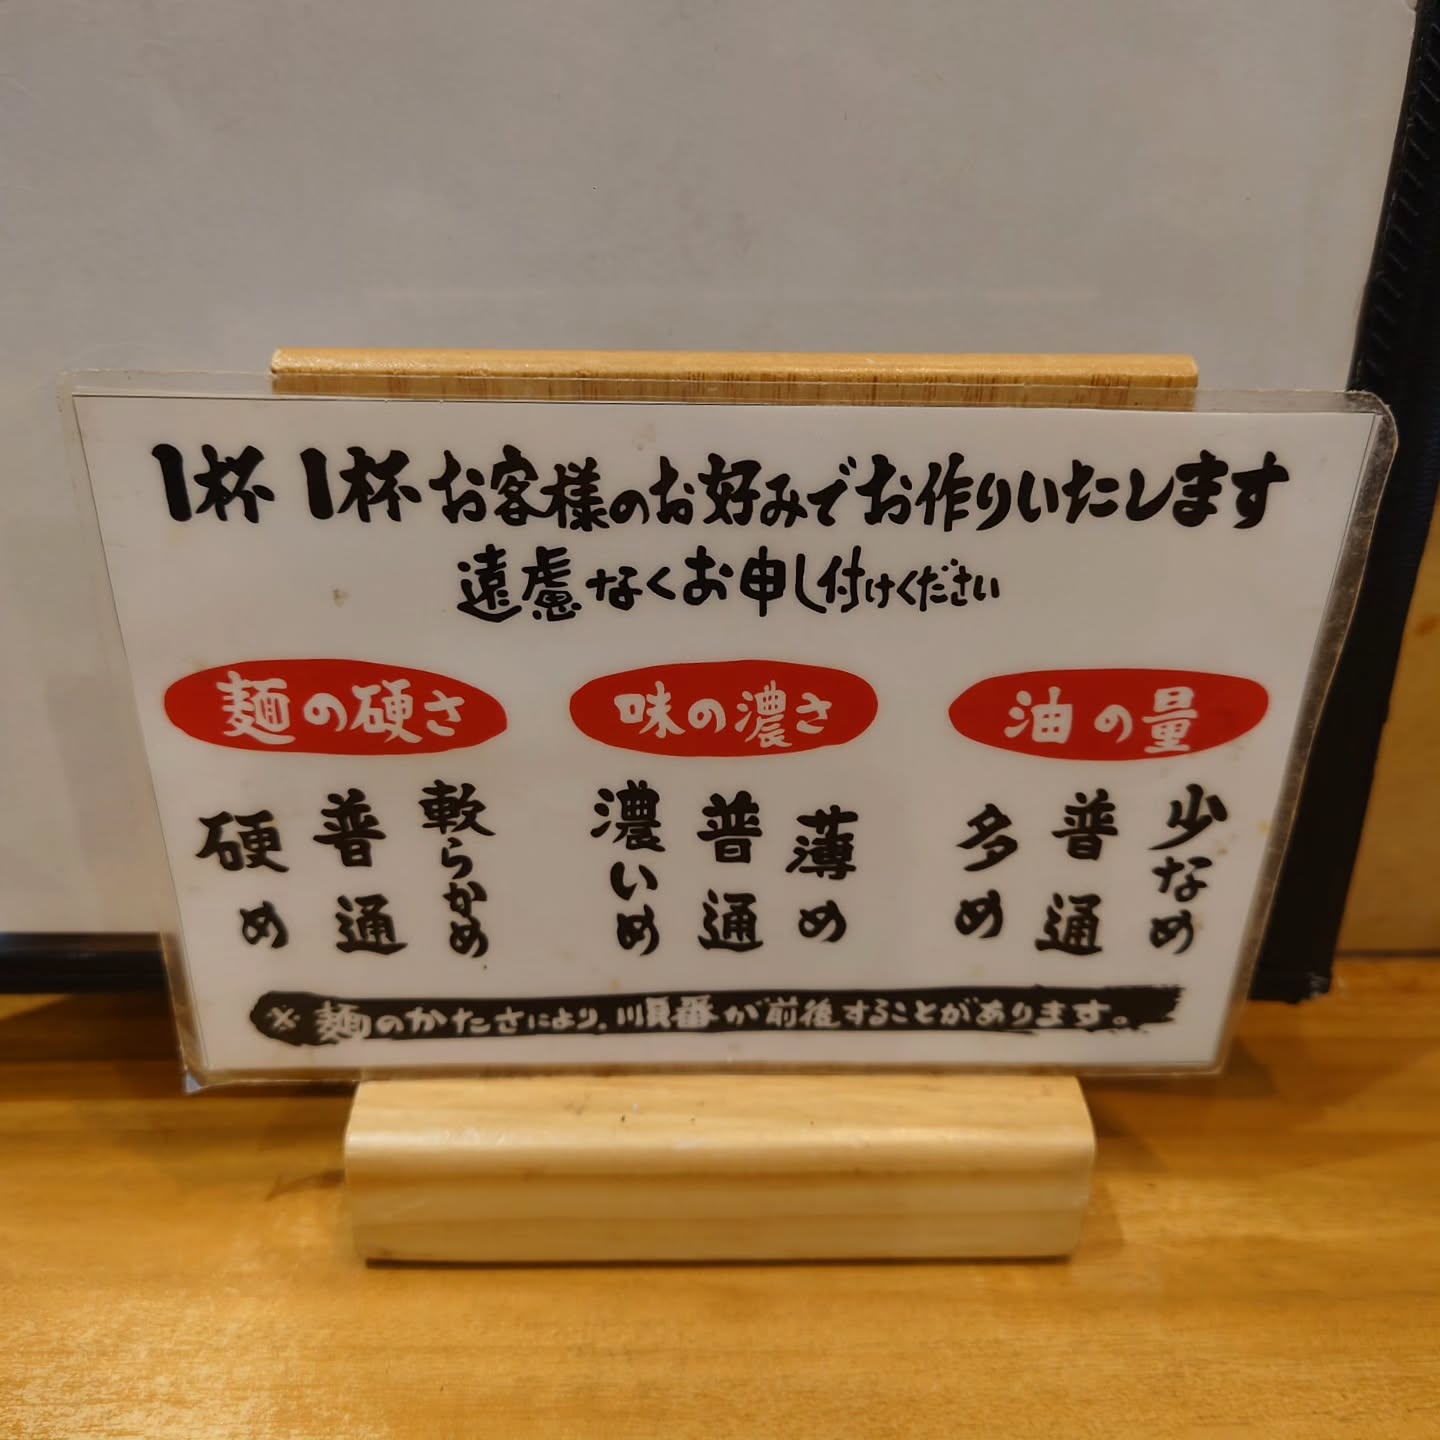 1杯 1杯お客様のお好みでお作りいたします
遠慮なくお申し付けください
麺の硬さ
硬め
普通
軟らかめ
味の濃さ
濃いめ
普通
薄め
油の量
多め
普通
少なめ
※麺のかたさにより、順番が前後することがあります。